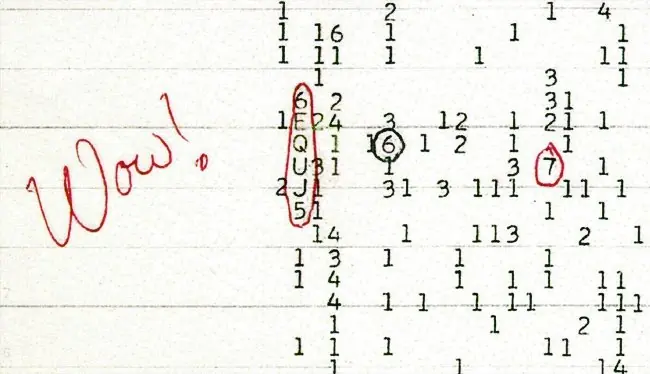 1 2 1 4
1 16 1 1 1
1 11 1 1 11
1 3 1
6 2 31
1 E 24 3 12 1 21 1
Q 1 16 1 2 1 1
U 31 1 3 7 1
Wow!
2 J 1 31 3 111 11 1
5 1 1 1
14 1 113 2 1
1 3 1 1 1
1 4 1 1 1 11
4 1 1 1 11 111
1 1 2 1
1 1 1 11 1
1 1 14